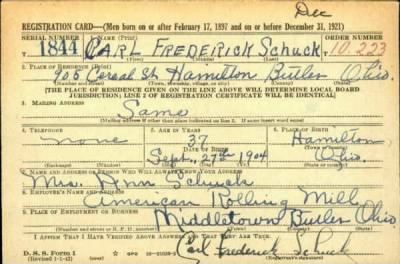 Dec
REGISTRATION CARD—(Men born on or after February 17, 1897 and on or before December 31, 1921)
SERIAL NUMBER 1. NAME (Print) ORDER NUMBER
1844 CARL FREDERICK Schuck 10.223
(First) (Middle) (Last)
2. PLACE OF RESIDENCE (Print)
905 Cereal St Hamilton Butler Ohio.
[THE PLACE OF RESIDENCE GIVEN ON THE LINE ABOVE WILL DETERMINE LOCAL BOARD
JURISDICTION; LINE 2 OF REGISTRATION CERTIFICATE WILL BE IDENTICAL]
3. MAILING ADDRESS
Same
[Mailing address if other than place indicated on line 2. If same insert word same]
4. TELEPHONE 5. AGE IN YEARS 6. PLACE OF BIRTH
none 37 Hamilton
DATE OF BIRTH (Town or county)
Sept. 27th 1904 Ohio.
(Exchange) (Number) (Mo.) (Day) (Yr.) (State or country)
7. NAME AND ADDRESS OF PERSON WHO WILL ALWAYS KNOW YOUR ADDRESS
Mrs. Ann Schuck
8. EMPLOYER'S NAME AND ADDRESS
American Rolling Mill
9. PLACE OF EMPLOYMENT OR BUSINESS
Middletown Butler Ohio
I AFFIRM THAT I HAVE VERIFIED ABOVE ANSWERS AND THAT THEY ARE TRUE.
D. S. S. Form 1 Carl Frederick Schuck
(Revised 1-1-42)